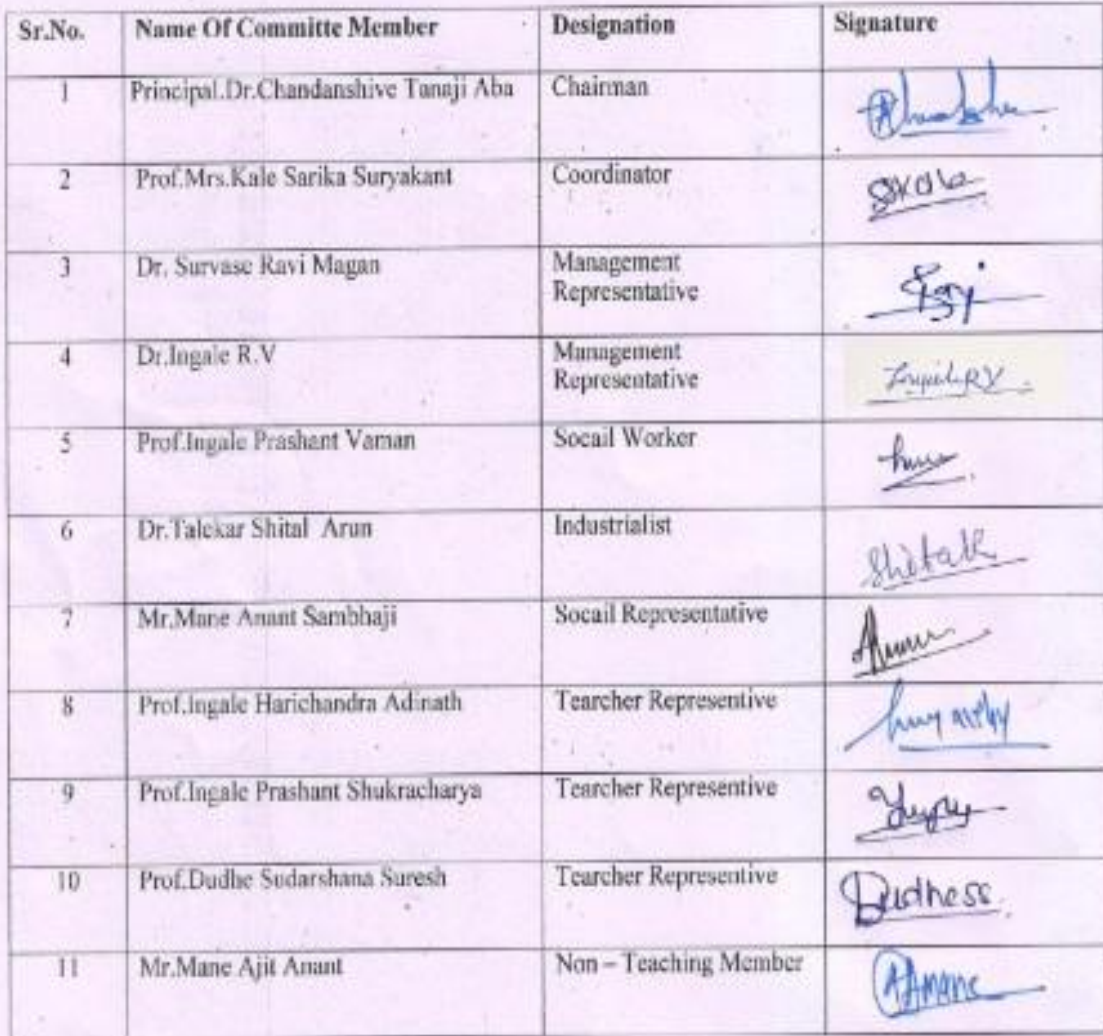 Sr.No. Name Of Committe Member Designation Signature
1 Principal.Dr.Chandanshive Tanaji Aba Chairman
2 Prof.Mrs.Kale Sarika Suryakant Coordinator
3 Dr. Survase Ravi Magan Management
Representative
4 Dr.Ingale R.V Management
Representative
5 Prof.Ingale Prashant Vaman Socail Worker
6 Dr.Talekar Shital Arun Industrialist
7 Mr.Mane Anant Sambhaji Socail Representative
8 Prof.Ingale Harichandra Adinath Tearcher Representive
9 Prof.Ingale Prashant Shukracharya Tearcher Representive
10 Prof.Dudhe Sudarshana Suresh Tearcher Representive
Dudhess
11 Mr.Mane Ajit Anant Non – Teaching Member
AAMane